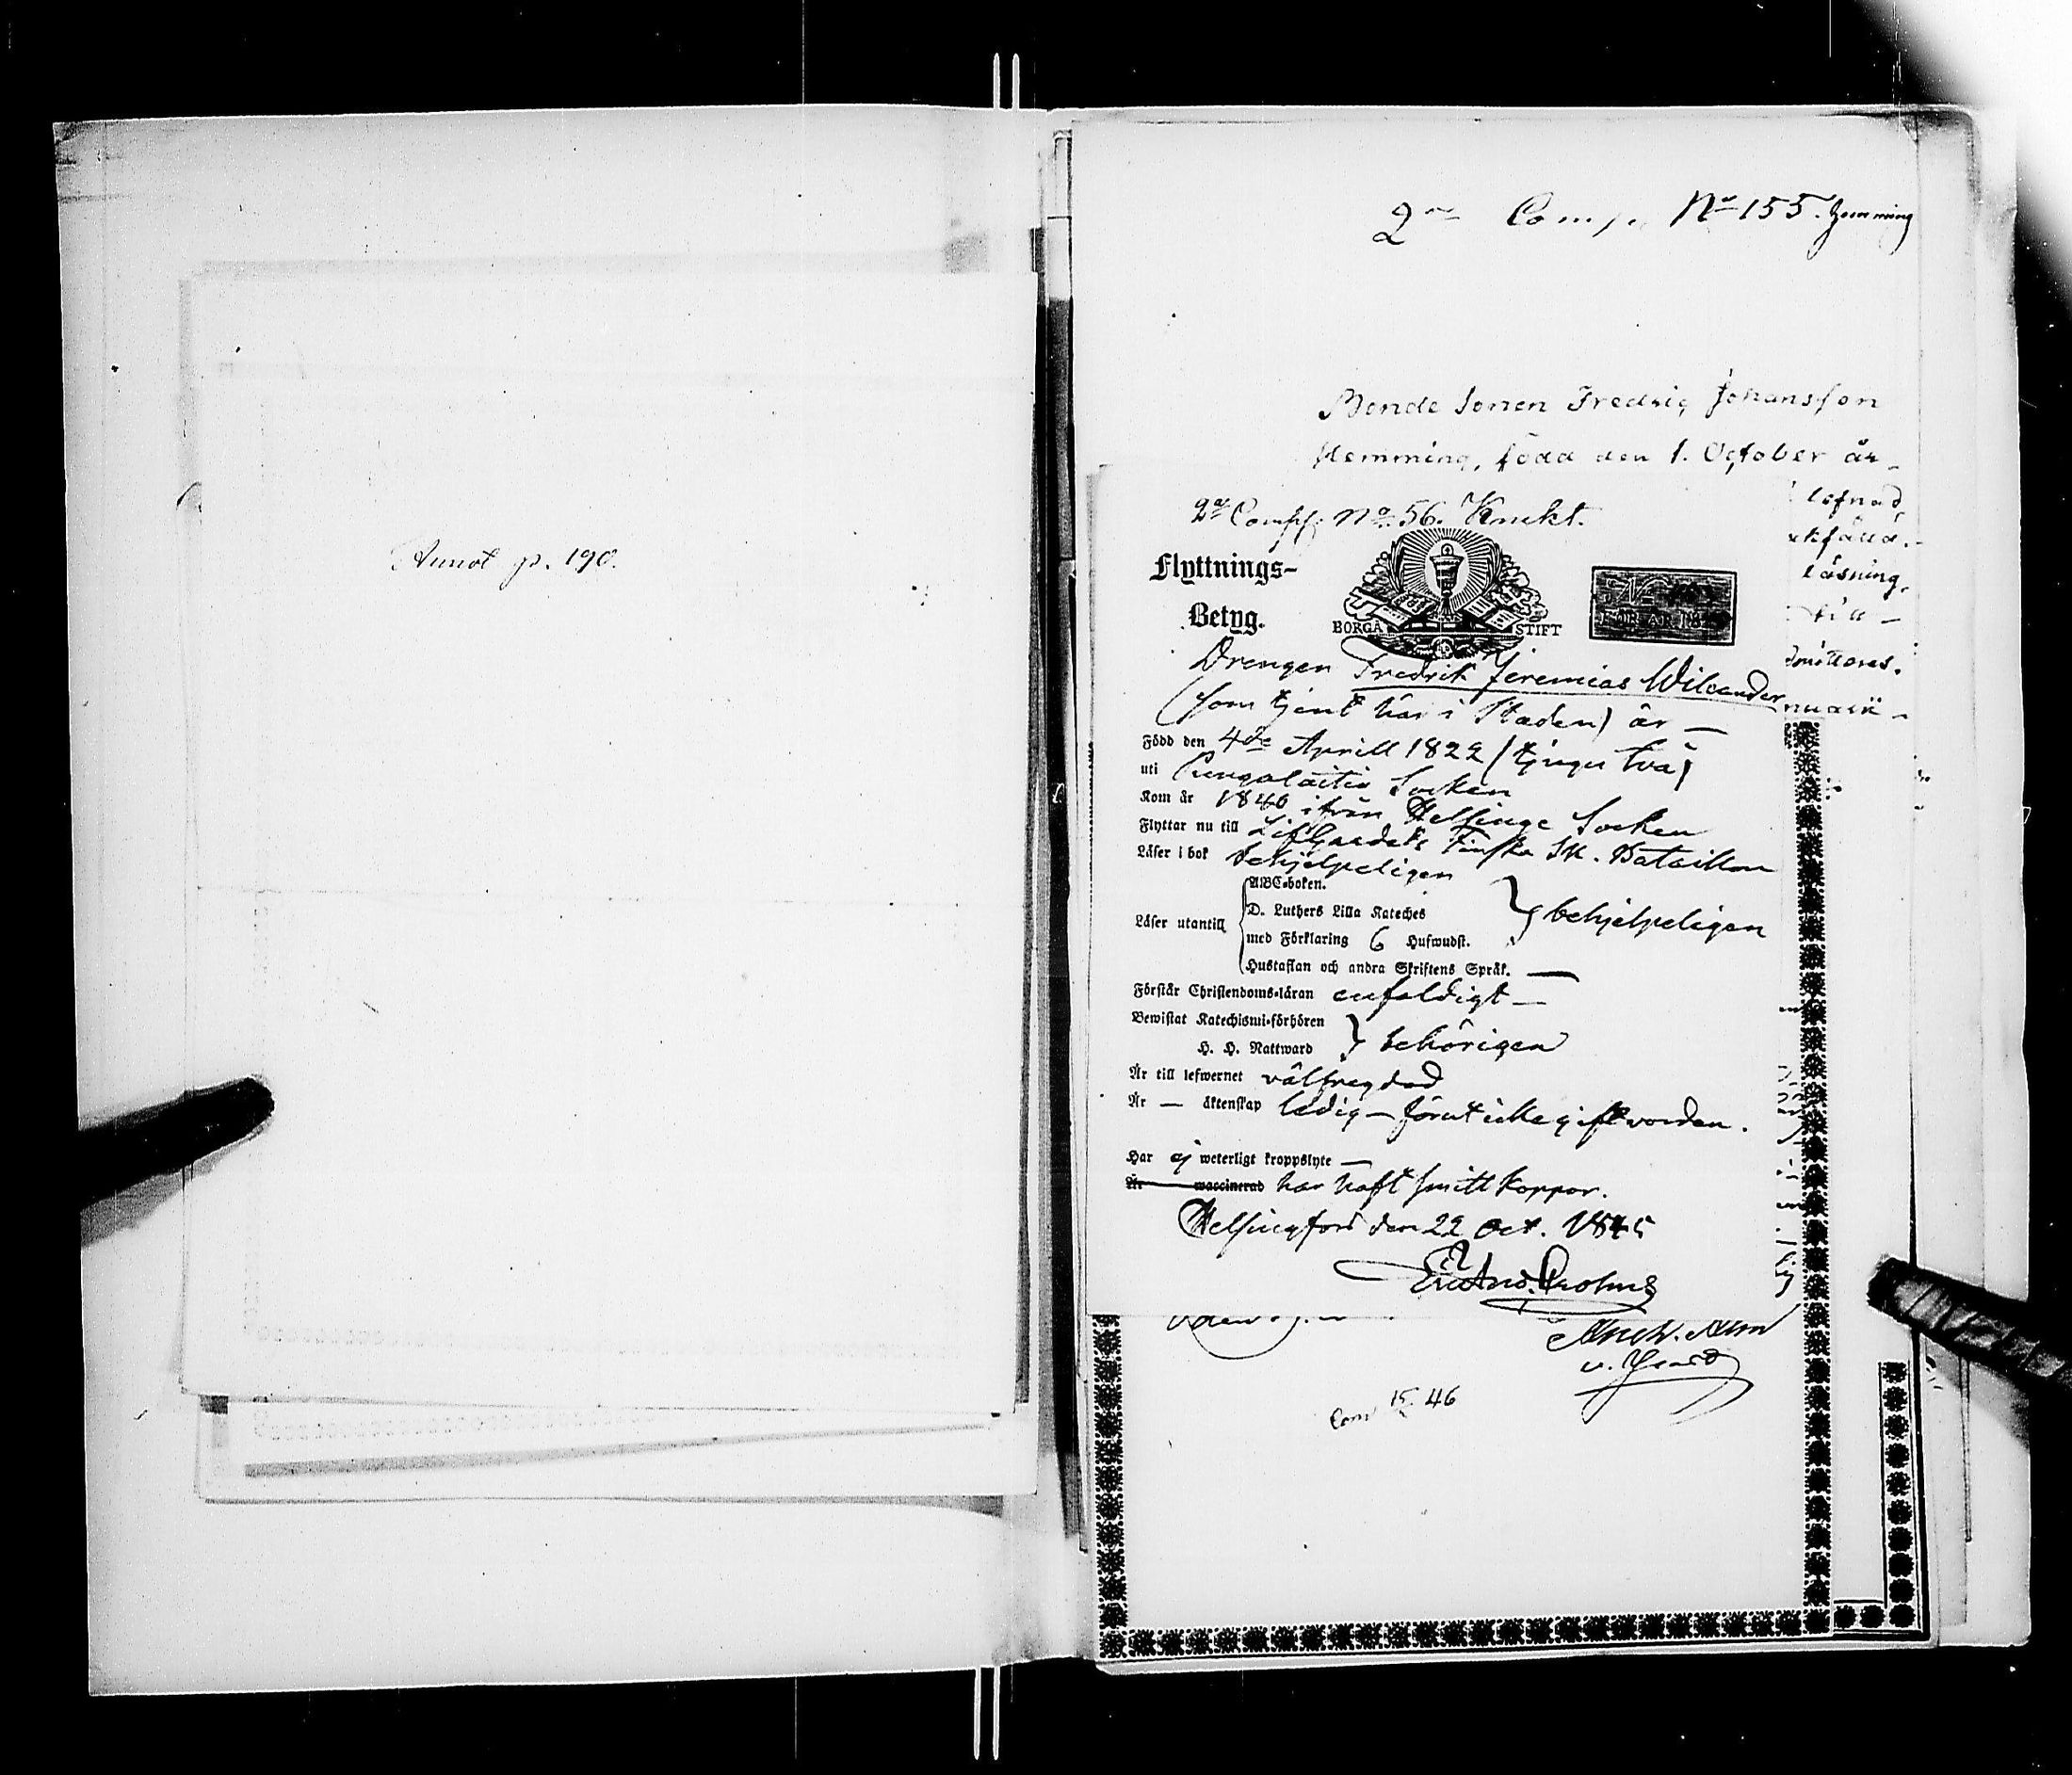 Annot p. 190.
2de Comp. No 155. Hemming
Bonde Sonen Fredrig Johansson
Hemming, född den 1. October år
lefnad,
läsning,
till
2de Comp. No 56. Knekt.
Flyttnings-
Betyg.
BORGÅ STIFT
No
FÖR ÅR 18
Drengen Fredrik Jeremias Wilcander
(som tjent här i Staden) är —
Född den 4de Aprill 1822 (tjugu två)
uti Pungalaitio Socken
Kom år 1840 ifrån Helsinge Socken
Flyttar nu till LifGardets Finska Sk. Bataillon
Läser i bok behjelpeligen
Läser utantill
ABC-boken.
D. Luthers Lilla Kateches
med Förklaring 6 Hufwudst.
behjelpeligen
Hustaflan och andra Skriftens Språk. —
Förstår Christendoms-läran enfaldigt —
Bewistat Katechismi-förhören
H. H. Nattward
behörigen
Är till lefwernet välfregdad
Är — äktenskap ledig — förut icke gift vorden.
Har ej weterligt kroppslyte —
Är waccinerad har haft smittkoppor.
Helsingfors den 22 Oct. 1845
Com 15 46